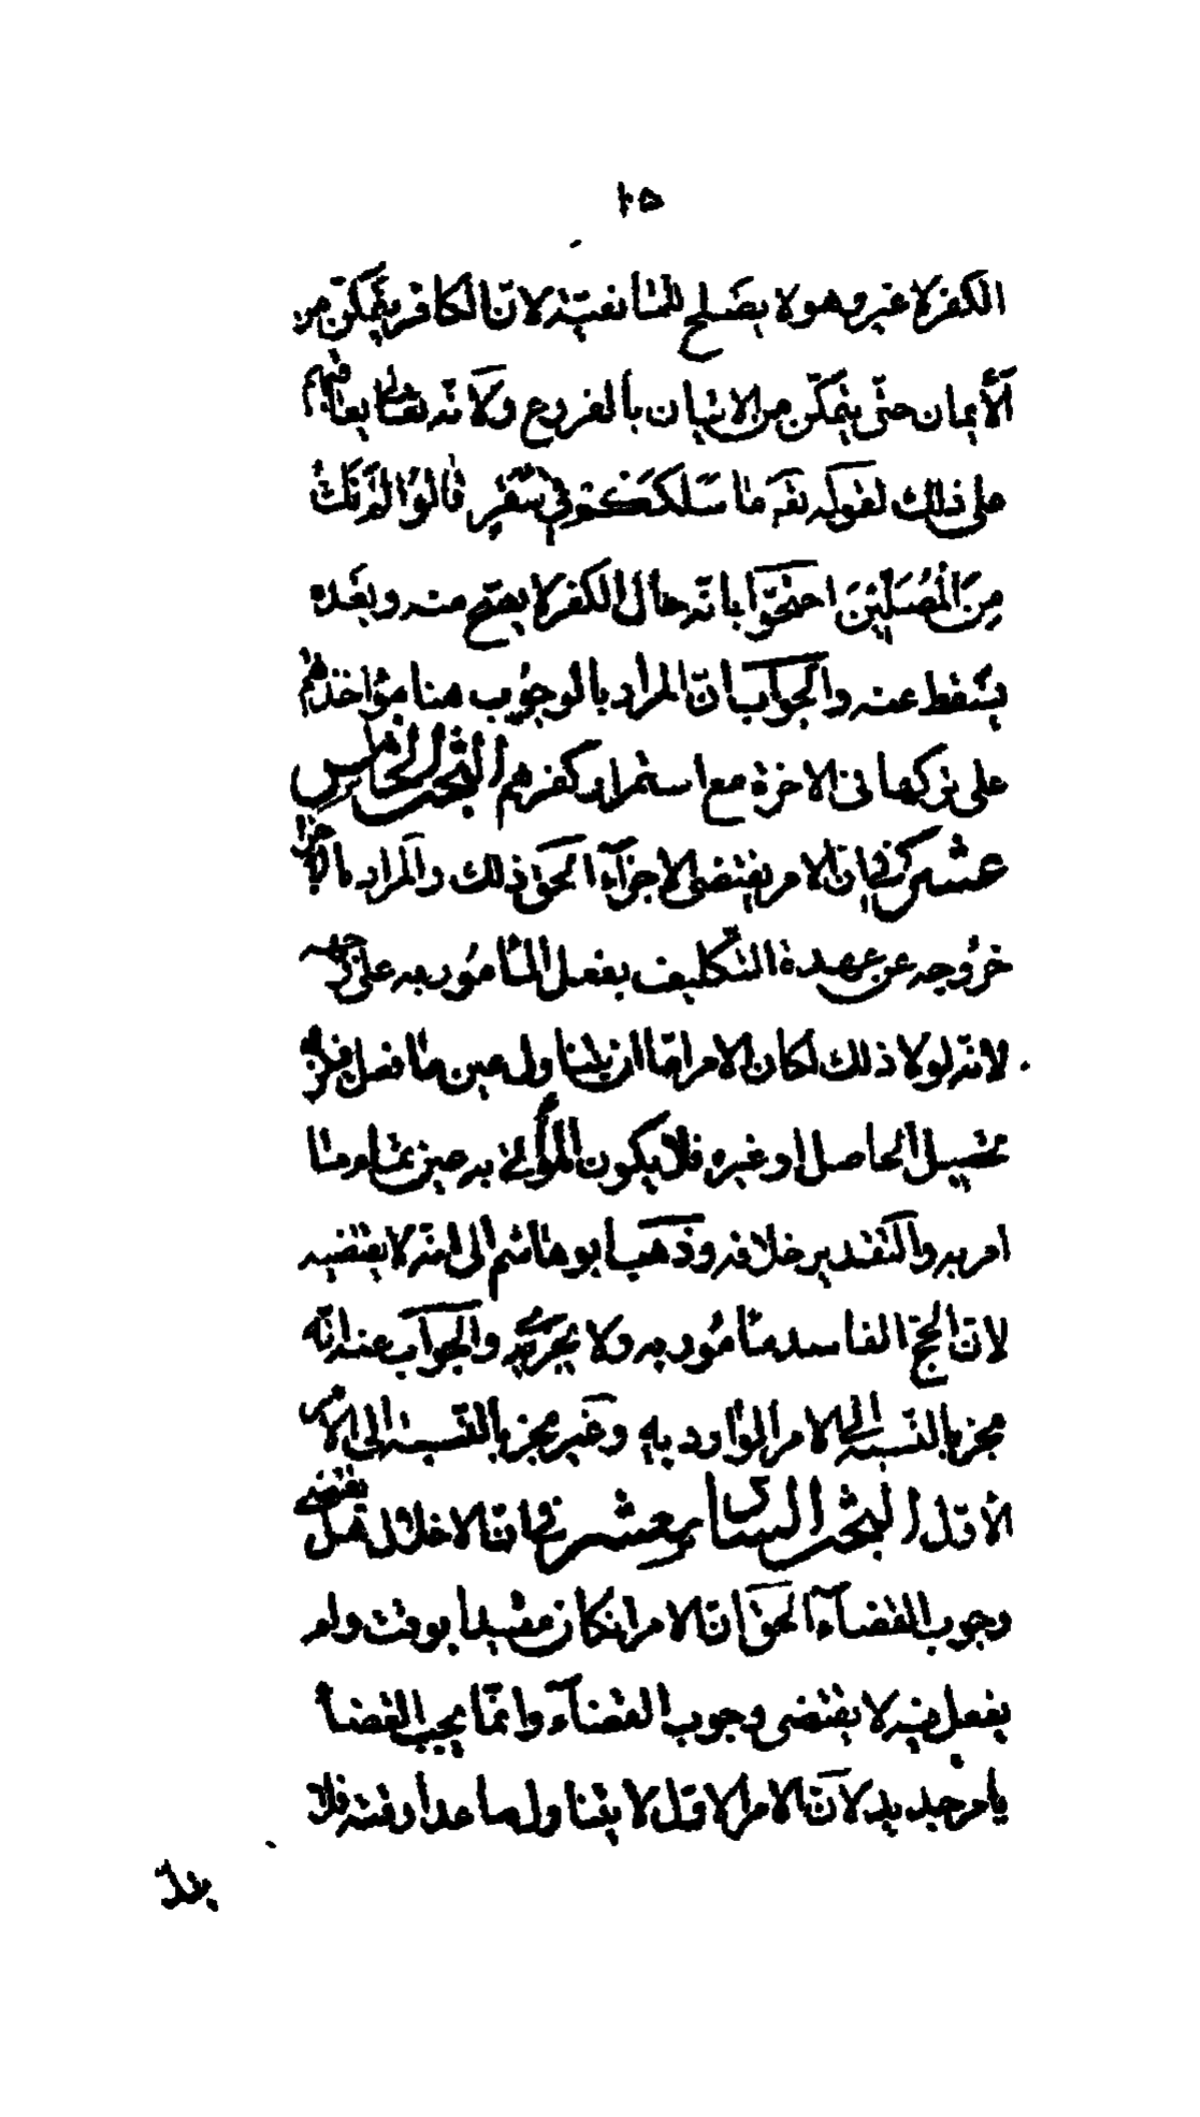 الكفر لا غير وهو لا يصلح للمانعيّة لانّ الكافر يتمكّن من
الأيمان حتّى يتمكّن من الاتيان بالفروع ولانّه تعالى يعاقبهم
على ذلك لقوله تعالى مَا سَلَكَكُمْ فِي سَقَرَ قالُوا لَمْ نَكُ
مِنَ الْمُصَلّينَ احتجّوا بانّه حال الكفر لا يصحّ منه وبعده
يسقط عنه والجواب انّ المراد بالوجوب هنا مؤاخذتهم
على تركها فى الاخرة مع استمرار كفرهم البحث الخامس
عشر في ان الامر يقتضى الاجزاء الحق ذلك والمراد بالاجزاء
خروجه عن عهدة التكليف بفعل المأمور به على وجهه
لانّه لولا ذلك لكان الامر امّا ان يتناول عين ما فعل فيلزم
تحصيل الحاصل او غيره فلا يكون المأتي به عين تمام ما
امر به والتقدير خلافه وذهب ابو هاشم الى انّه لا يقتضيه
لانّ الحجّ الفاسد مأمور به ولا يجزيه والجواب عنه انّه
مجز بالنّسبة الى الامر الوارد به وغير مجز بالنّسبة الى الامر
الأوّل البحث السادس عشر في انّ الاخلال هل يقتضي
وجوب القضاء الحق انّ الامر ان كان مقيدا بوقت ولم
يفعل فيه لا يقتضى وجوب القضاء وانّما يجب القضاء
بامر جديد لانّ الامر الاوّل لا يتناول ما عدا وقته فلا